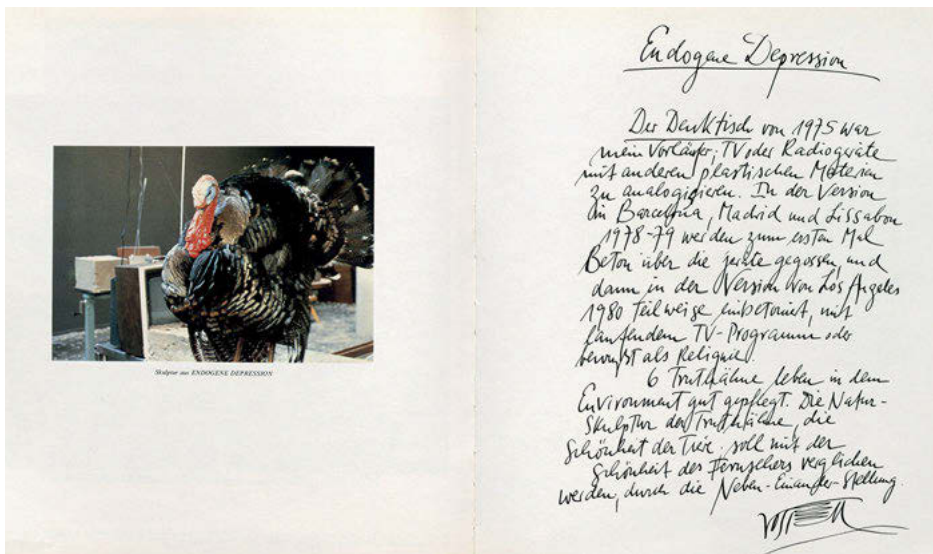 Skulptur aus ENDOGENE DEPRESSION
Endogene Depression
Der Denktisch von 1975 war
mein Vorläufer, TV oder Radiogeräte
mit anderen plastischen Materien
zu analogisieren. In der Version
in Barcelona, Madrid und Lissabon
1978-79 werden zum ersten Mal
Beton über die geräte gegossen, und
dann in der Version von Los Angeles
1980 teilweise einbetoniert, mit
laufendem TV-Programm oder
bewußt als Reliquie.
6 Truthähne leben in dem
Environment gut gepflegt. Die Natur-
skulptur der Truthähne, die
Schönheit der Tiere soll mit der
Schönheit des Fernsehers verglichen
werden, durch die Neben-Einander-Stellung.
Vostell